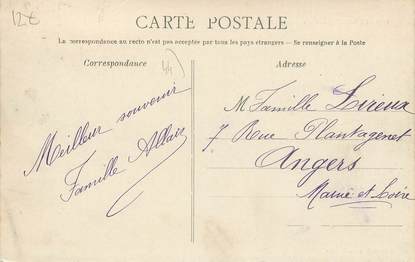 12€
CARTE POSTALE
La correspondance au recto n'est pas acceptée par tous les pays étrangers — Se renseigner à la Poste
Correspondance
44
Adresse
Meilleur souvenir
Famille Allair
M Famille Lireux
7 Rue Plantagenet
Angers
Maine et Loire